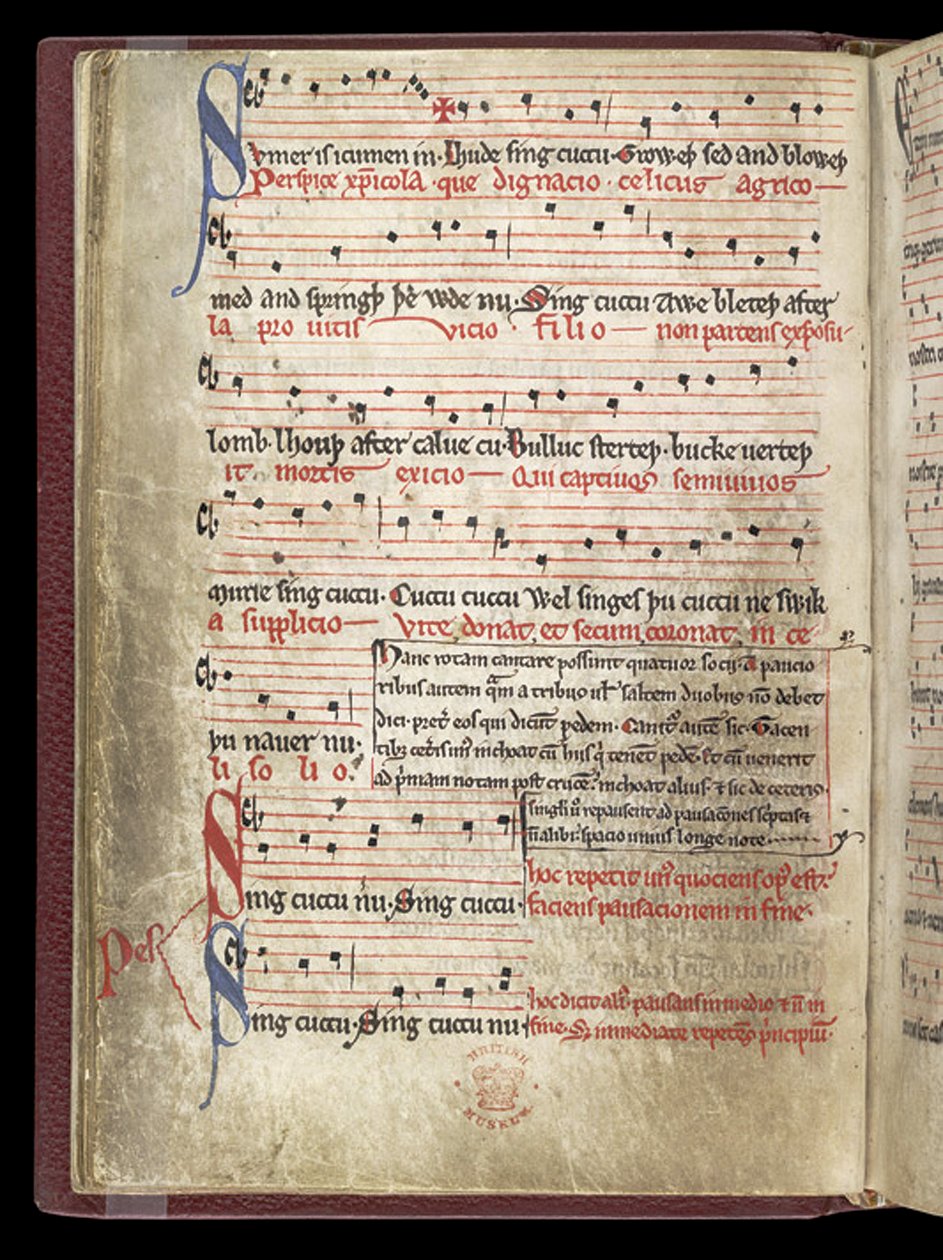 Svmer is icumen in. Lhude sing cuccu. Groweþ sed and bloweþ
Perspice xp̄icola. que dignacio. celicus agrico
med and springþ þe wde nu. Sing cuccu Awe bleteþ after
la pro uitis vicio. filio non parcens exposu
lomb. lhouþ after calue cu. Bulluc sterteþ. bucke uerteþ
it mortis exicio Qui captiuos semiuiuos
murie sing cuccu. Cuccu cuccu Wel singes þu cuccu ne swik
a supplicio Vite donat et secum coronat in ce
þu nauer nu.
li so li o.
Hanc rotam cantare possunt quatuor socij. A paucio
ribus autem qͣm a tribus ul' saltem duobus nō debet
dici. pret' eos qui dicūt pedem. Canit' autē sic. Tacen
tibȝ cet'is un' inchoat cū hijs q' tenēt pedē. Et cū uenerit
ad p'mam notam post crucē. inchoat alius. ⁊ sic de ceteris.
singli u' repausent ad pausacōnes sc'ptas ⁊
n̄ alibi. spacio unius longe note
Sing cuccu nu. Sing cuccu.
hoc repetit un' quociens op' est.
faciens pausacionem in fine.
Pes
Sing cuccu. Sing cuccu nu.
hoc dicit ali' pausans in medio ⁊ n̄ in
fine. S; immediate repetens p'ncipiū.
BRITISH
MUSEUM